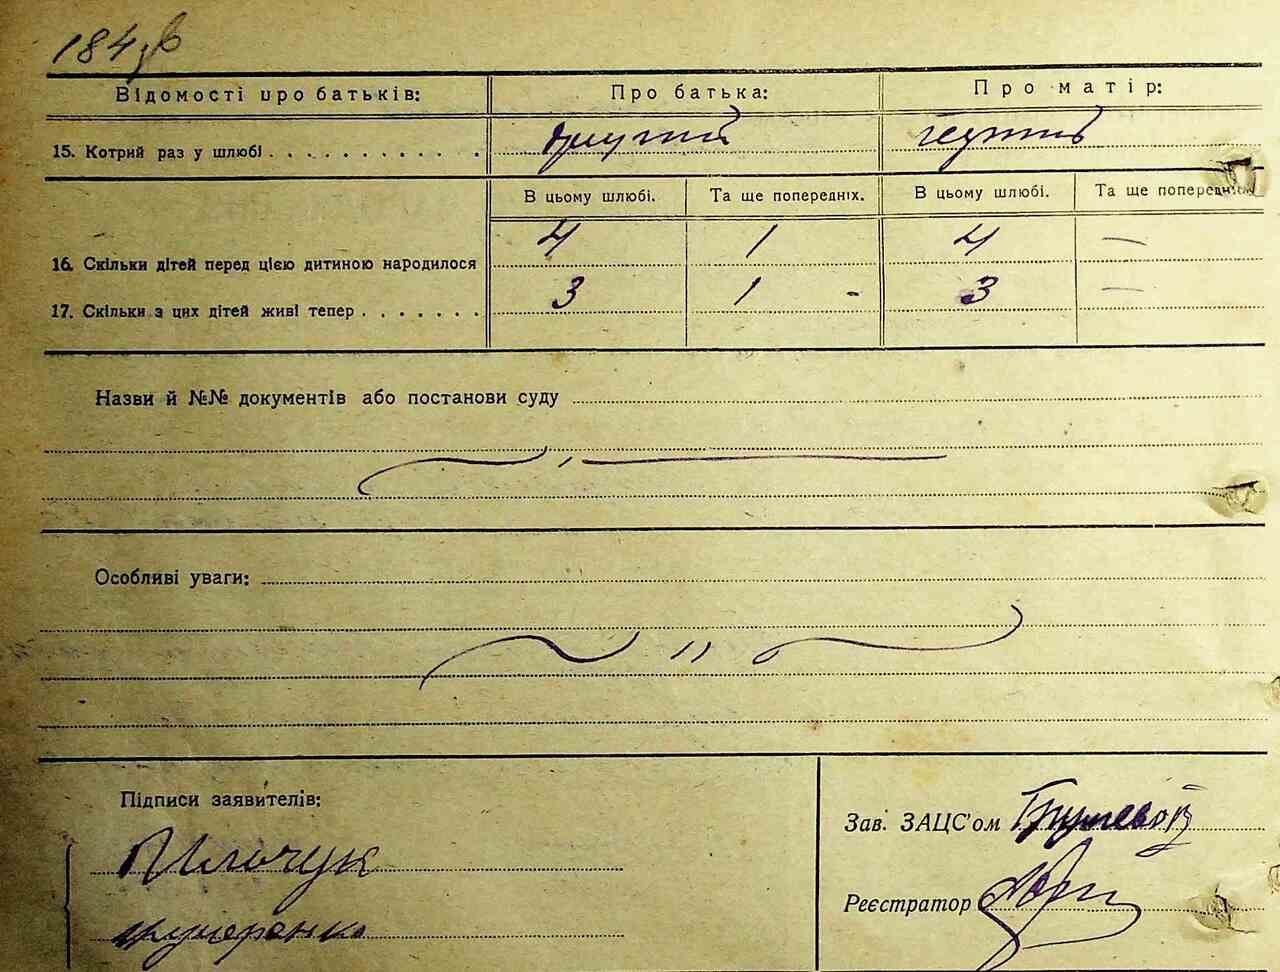 184 зв
Відомості про батьків: Про батька: Про матір:
15. Котрий раз у шлюбі . . . . . . . . . . другий
В цьому шлюбі. Та ще попередніх. В цьому шлюбі. Та ще попередніх.
16. Скільки дітей перед цією дитиною народилося 4 1 4 —
17. Скільки з цих дітей живі тепер . . . . . . . 3 1 - 3 —
Назви й №№ документів або постанови суду
Особливі уваги:
Підписи заявителів:
Зав. ЗАЦС'ом
Пильчук
Реєстратор